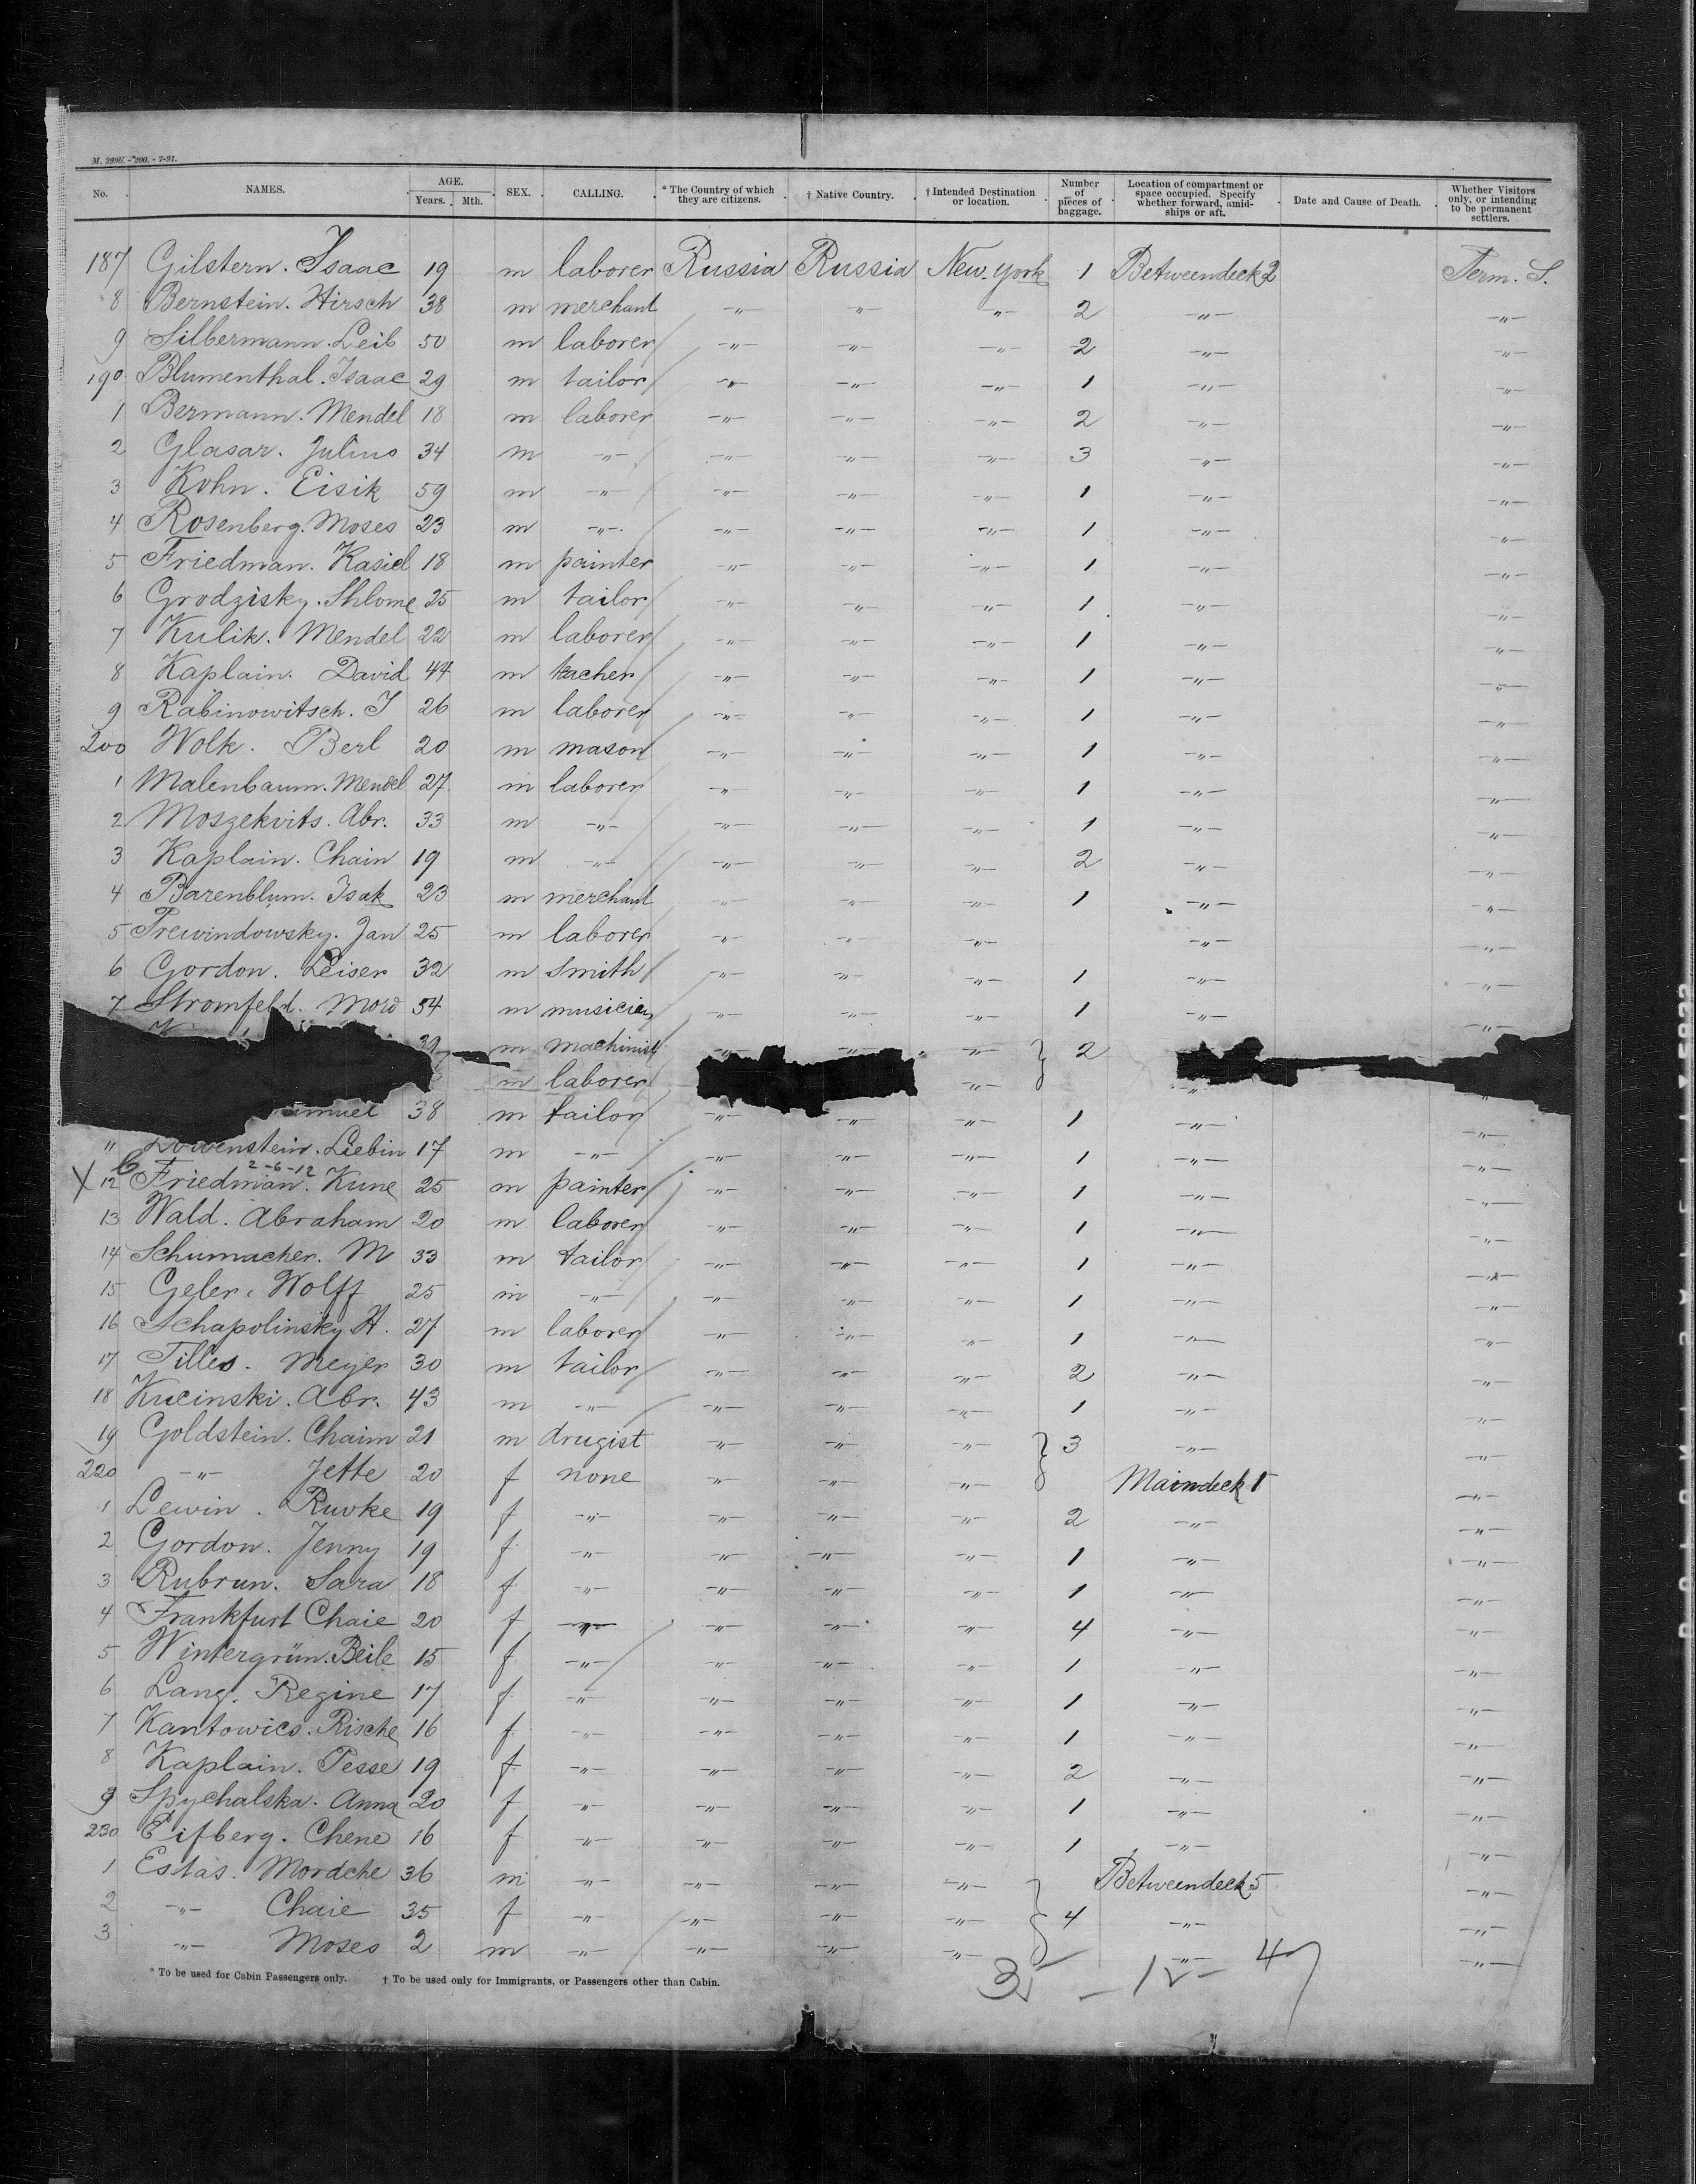 M. 299U. - 200. - 7-91.
No. NAMES. AGE. Years. Mth. SEX. CALLING. * The Country of which they are citizens. † Native Country. † Intended Destination or location. Number of pieces of baggage. Location of compartment or space occupied. Specify whether forward, amidships or aft. Date and Cause of Death. Whether Visitors only, or intending to be permanent settlers.
187 Gilstern. Isaac 19 m laborer Russia Russia New-York 1 Betweendeck 2
8 Bernstein. Hirsch 38 m merchant -"- -"- -"- 2 -"- -"-
9 Silbermann. Leib 50 m laborer -"- -"- -"- 2 -"- -"-
190 Blumenthal. Isaac 29 m tailor -"- -"- -"- 1 -"- -"-
1 Bermann. Mendel 18 m laborer -"- -"- -"- 2 -"- -"-
2 Glasar. Julius 34 m -"- -"- -"- -"- 3 -"- -"-
3 Kohn. Eisik 59 m -"- -"- -"- -"- 1 -"- -"-
4 Rosenberg. Moses 23 m -"- -"- -"- -"- 1 -"- -"-
5 Friedman. Kasiel 18 m painter -"- -"- -"- 1 -"- -"-
6 Grodzisky. Shlome 25 m tailor -"- -"- -"- 1 -"- -"-
7 Kulik. Mendel 22 m laborer -"- -"- -"- 1 -"- -"-
8 Kaplain. David 44 m teacher -"- -"- -"- 1 -"- -"-
9 Rabinowitsch. I 26 m laborer -"- -"- -"- 1 -"- -"-
200 Wolk. Berl 20 m mason -"- -"- -"- 1 -"- -"-
1 Malenbaum. Mendel 27 m laborer -"- -"- -"- 1 -"- -"-
2 Moszekvits. Abr. 33 m -"- -"- -"- -"- 1 -"- -"-
3 Kaplain. Chain 19 m -"- -"- -"- -"- 2 -"- -"-
4 Barenblum. Isak 23 m merchant -"- -"- -"- 1 -"- -"-
5 Trewindowsky. Jan 25 m laborer -"- -"- -"- -"- -"-
6 Gordon. Leiser 32 m smith -"- -"- -"- 1 -"- -"-
7 Stromfeld. Mord 54 m musicien -"- -"- -"- 1 -"- -"-
39 m machinist -"- -"- -"- 2
m laborer -"- -"-
muel 38 m tailor -"- -"- -"- 1 -"- -"-
" Löwenstein. Liebin 17 m -"- -"- -"- -"- 1 -"- -"-
2-6-12
X 12 Friedman. Kune 25 m painter -"- -"- -"- 1 -"- -"-
13 Wald. Abraham 20 m laborer -"- -"- -"- 1 -"- -"-
14 Schumacher. M 33 m tailor -"- -"- -"- 1 -"- -"-
15 Geler. Wolff 25 m -"- -"- -"- -"- 1 -"- -"-
16 Schapolinsky H. 27 m laborer -"- -"- -"- 1 -"- -"-
17 Tilles. Meyer 30 m tailor -"- -"- -"- 2 -"- -"-
18 Kucinski. Abr. 43 m -"- -"- -"- -"- 1 -"- -"-
19 Goldstein. Chaim 21 m drugist -"- -"- -"- 3 -"- -"-
220 -"- Jette 20 f none -"- -"- -"- Maindeck 1 -"-
1 Lewin. Ruvke 19 f -"- -"- -"- -"- 2 -"- -"-
2 Gordon. Jenny 19 f -"- -"- -"- -"- 1 -"- -"-
3 Rubrun. Sara 18 f -"- -"- -"- -"- 1 -"- -"-
4 Frankfurt Chaie 20 f -"- -"- -"- -"- 4 -"- -"-
5 Wintergrün. Beile 15 f -"- -"- -"- -"- 1 -"- -"-
6 Lang. Regine 17 f -"- -"- -"- -"- 1 -"- -"-
7 Kantowics. Rische 16 f -"- -"- -"- -"- 1 -"- -"-
8 Kaplain. Pesse 19 f -"- -"- -"- -"- 2 -"- -"-
9 Spychalska. Anna 20 f -"- -"- -"- -"- 1 -"- -"-
230 Eifberg. Chene 16 f -"- -"- -"- -"- 1 -"- -"-
1 Estas. Mordche 36 m -"- -"- -"- -"- Betweendeck 5 -"-
2 -"- Chaie 35 f -"- -"- -"- -"- 4 -"- -"-
3 -"- Moses 2 m -"- -"- -"- -"- -"- -"-
* To be used for Cabin Passengers only. † To be used only for Immigrants, or Passengers other than Cabin.